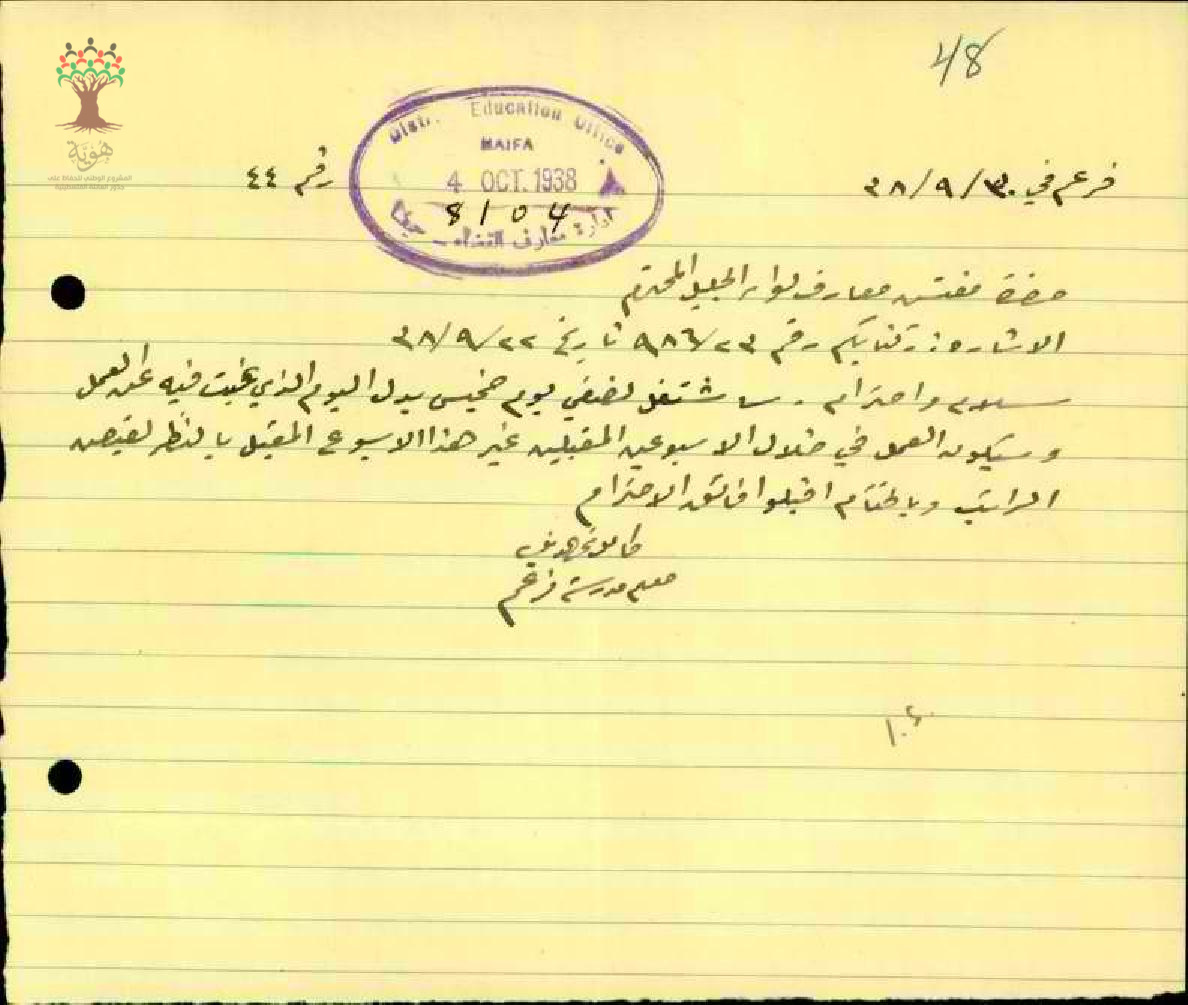 48
هوية
المشروع الوطني للحفاظ على
جذور العائلة الفلسطينية
Distr. Education Office
HAIFA
4 OCT. 1938
8104
ادارة معارف القضاء - حيفا
فرعم في ٣٠/٩/٣٨
رقم ٤٤
حضرة مفتش معارف لواء الجليل المحترم
الاشارة: كتابكم رقم ٩٨٦/٢٣ تاريخ ٢٢/٩/٣٨
سلام واحترام. ساشتغل نصفي يوم خميس بدل اليوم الذي غبت فيه عن العمل
وسيكون العمل في خلال الاسبوعين المقبلين غير هذا الاسبوع المقبل بالنظر لقبض
الراتب وبالختام اقبلوا فائق الاحترام
معلم مدرسة فرعم